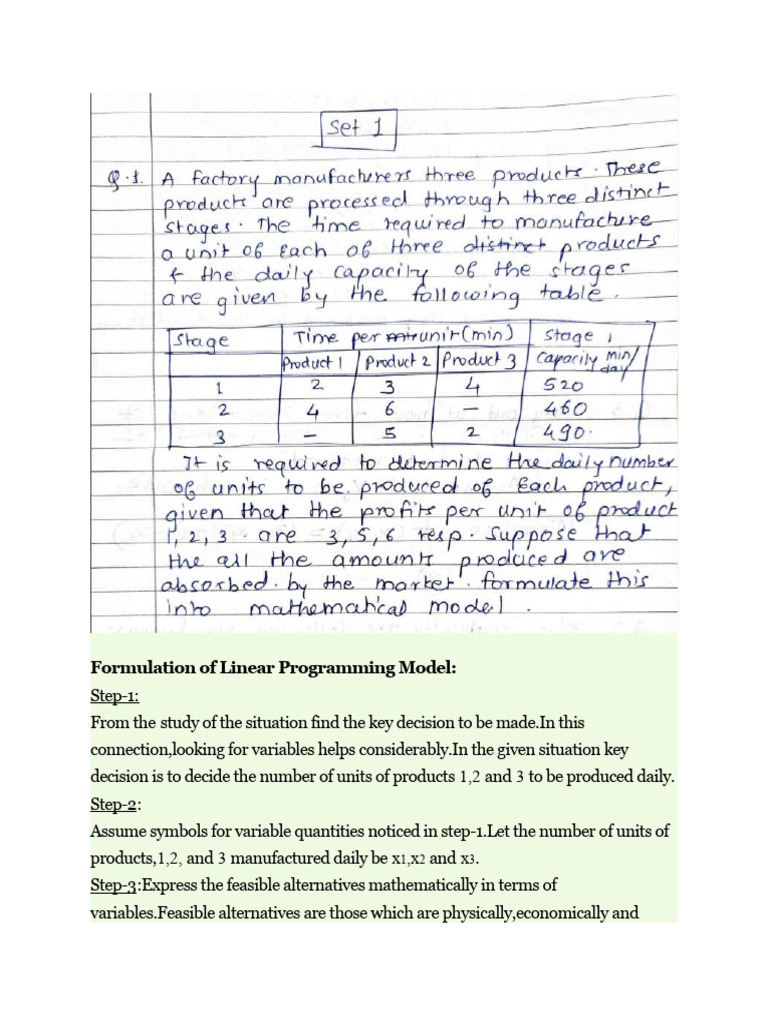 Set 1
Q.1. A factory manufacturers three products. These
products are processed through three distinct
stages. The time required to manufacture
a unit of Each of three distinct products
& the daily capacity of the stages
are given by the following table.
Stage Time per unit (min) Stage
Product 1 Product 2 Product 3 Capacity min/day
1 2 3 4 520
2 4 6 – 460
3 – 5 2 490.
It is required to determine the daily number
of units to be produced of Each product,
given that the profits per unit of product
1, 2, 3 are -3, 5, 6 resp. Suppose that
the all the amounts produced are
absorbed by the market. formulate this
into mathematical model.
Formulation of Linear Programming Model:
Step-1:
From the study of the situation find the key decision to be made.In this
connection,looking for variables helps considerably.In the given situation key
decision is to decide the number of units of products 1,2 and 3 to be produced daily.
Step-2:
Assume symbols for variable quantities noticed in step-1.Let the number of units of
products,1,2, and 3 manufactured daily be x1,x2 and x3.
Step-3:Express the feasible alternatives mathematically in terms of
variables.Feasible alternatives are those which are physically,economically and